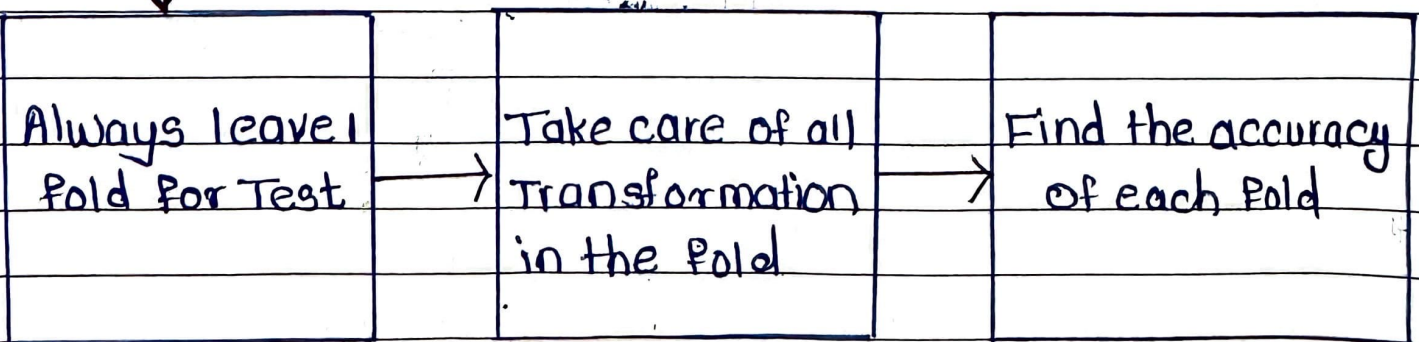 Always leave 1
fold for Test
Take care of all
Transformation
in the fold
Find the accuracy
of each fold